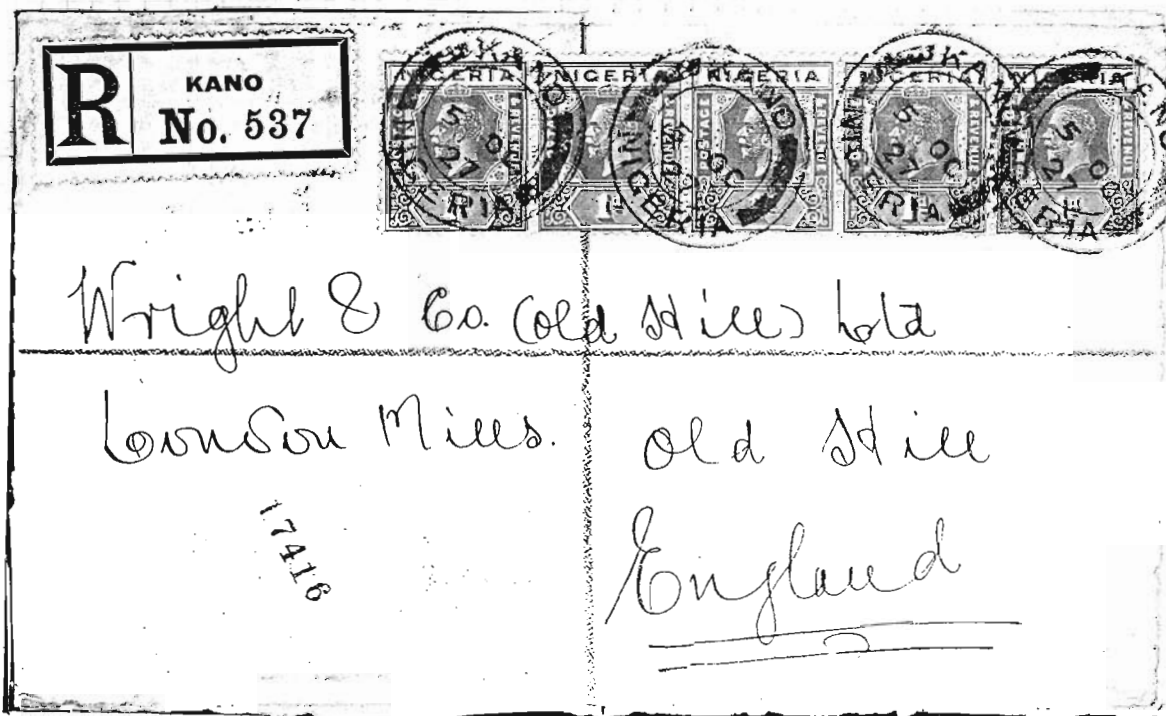 R KANO
No. 537
NIGERIA NIGERIA NIGERIA NIGERIA NIGERIA
POSTAGE & REVENUE
1d
KANO
5 OC
27
NIGERIA
Wright & Co. (Old Hill) Ltd
London Mills. Old Hill
England
17416